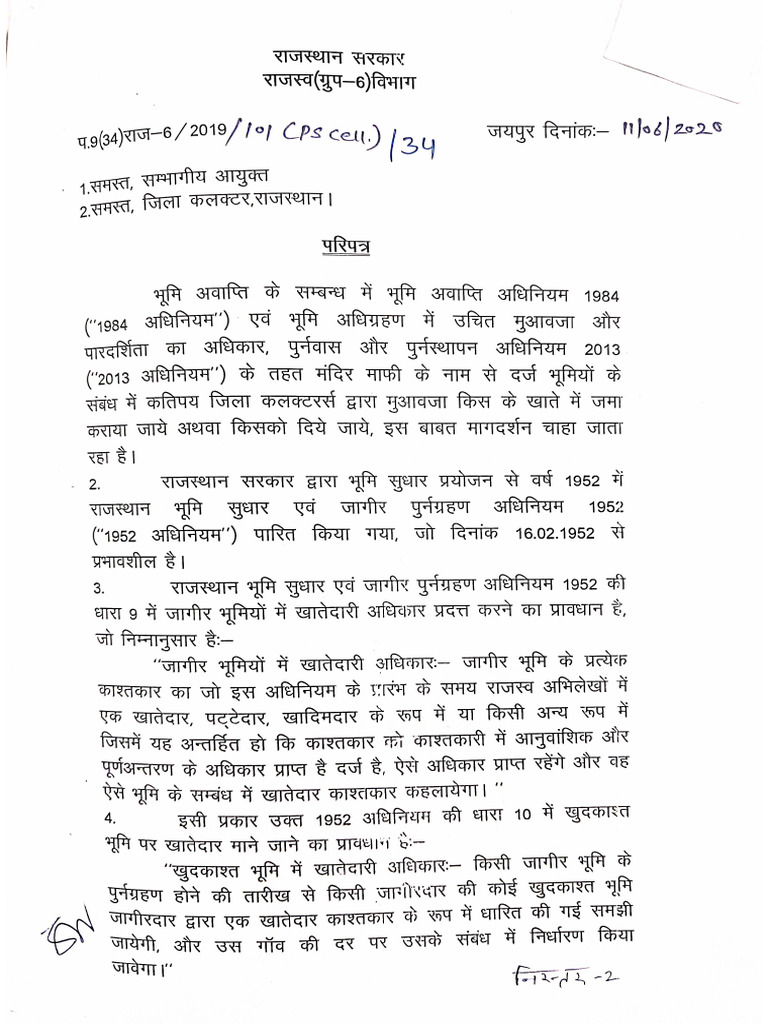 राजस्थान सरकार
राजस्व(ग्रुप–6)विभाग
प.9(34)राज–6/2019/101(PS Cell.)/34
जयपुर दिनांकः– 11/06/2020
1.समस्त, सम्भागीय आयुक्त
2.समस्त, जिला कलक्टर,राजस्थान।
परिपत्र
भूमि अवाप्ति के सम्बन्ध में भूमि अवाप्ति अधिनियम 1984
("1984 अधिनियम") एवं भूमि अधिग्रहण में उचित मुआवजा और
पारदर्शिता का अधिकार, पुर्नवास और पुर्नस्थापन अधिनियम 2013
("2013 अधिनियम") के तहत मंदिर माफी के नाम से दर्ज भूमियों के
संबंध में कतिपय जिला कलक्टर्स द्वारा मुआवजा किस के खाते में जमा
कराया जाये अथवा किसको दिये जाये, इस बाबत मागदर्शन चाहा जाता
रहा है।
2. राजस्थान सरकार द्वारा भूमि सुधार प्रयोजन से वर्ष 1952 में
राजस्थान भूमि सुधार एवं जागीर पुर्नग्रहण अधिनियम 1952
("1952 अधिनियम") पारित किया गया, जो दिनांक 16.02.1952 से
प्रभावशील है।
3. राजस्थान भूमि सुधार एवं जागीर पुर्नग्रहण अधिनियम 1952 की
धारा 9 में जागीर भूमियों में खातेदारी अधिकार प्रदत्त करने का प्रावधान है,
जो निम्नानुसार हैः–
"जागीर भूमियों में खातेदारी अधिकारः– जागीर भूमि के प्रत्येक
काश्तकार का जो इस अधिनियम के प्रारंभ के समय राजस्व अभिलेखों में
एक खातेदार, पट्टेदार, खादिमदार के रूप में या किसी अन्य रूप में
जिसमें यह अन्तर्हित हो कि काश्तकार को काश्तकारी में आनुवांशिक और
पूर्णअन्तरण के अधिकार प्राप्त है दर्ज है, ऐसे अधिकार प्राप्त रहेंगे और वह
ऐसे भूमि के सम्बंध में खातेदार काश्तकार कहलायेगा। "
4. इसी प्रकार उक्त 1952 अधिनियम की धारा 10 में खुदकाश्त
भूमि पर खातेदार माने जाने का प्रावधान हैः–
"खुदकाश्त भूमि में खातेदारी अधिकारः– किसी जागीर भूमि के
पुर्नग्रहण होने की तारीख से किसी जागीरदार की कोई खुदकाश्त भूमि
जागीरदार द्वारा एक खातेदार काश्तकार के रूप में धारित की गई समझी
जायेगी, और उस गॉव की दर पर उसके संबंध में निर्धारण किया
जावेगा।"
निरन्तर -2